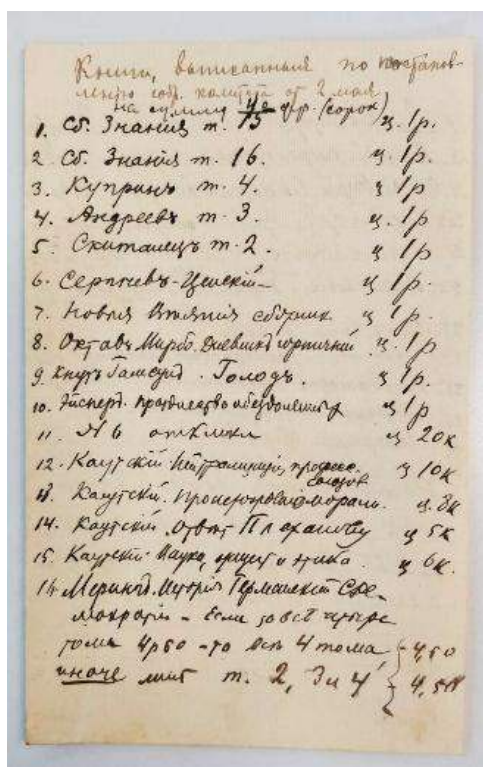 Книги, выписанныя по постанов-
ленію соб. комитета от 2 мая
на сумму 40 фр. (сорок)
1. Сб. Знанія т. 15 ц. 1р.
2 Сб. Знанія т. 16. ц 1р
3. Купринъ т. 4. ц 1р
4. Андреевъ т. 3. ц. 1р
5. Скиталецъ т. 2. ц 1р
6. Сергѣевъ-Ценскій ц 1р.
7. Новыя Вѣянія сборник ц 1р.
8. Октавъ Мирбо. Дневникъ горничной ц. 1р
9. Кнутъ Гамсунъ. Голодъ. ц 1р.
10. празднество ц 1р
11. № 6 отклики ц 20к
12. Каутскій Нейтралізація професс. союзов ц 10к
13. Каутскій. Происхожденіе морали. ц. 8к
14. Каутскій Отвѣт Плеханову ц 5к
15. Каутскій Наука, и этика. ц 6к.
16. Мерингъ. Исторія Германской Соц. Де-
мократіи – Если за всѣ четыре
тома 4р50 – то всѣ 4 тома, 4,50
иначе лишь т. 2, 3 и 4